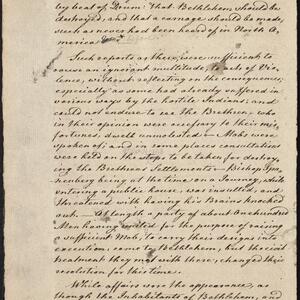 by beat of Drum "That Bethlehem should be
destroyed, and that a carnage should be made,
such as never had been heard of in North A-
merica
Such reports as these, were sufficient to
move an ignorant multitude, to acts of Vio-
lence, without reflecting on the consequence;
especially as some had already suffered in
various ways by the hostile Indians; and
could not endure to see the Brethren, who
in their opinion were necessary to their mis-
fortunes, dwell unmolested – Mobs were
spoken of; and in some places consultations
were held on the steps to be taken for destroy-
ing the Brethren's Settlement – Bishop Span-
genberg being at the time, on a Journey, while
entering a public house, was insulted, and
threatened with having his Brains knocked
out. – At length a party of about One hundred
Men having united for the purpose of raising
a sufficient Mob, to carry their designs into
execution, came to Bethlehem, but the
treatment they met with there, changed their
resolution for this time.
While affairs wore the appearance, as
though the Inhabitants of Bethlehem, and